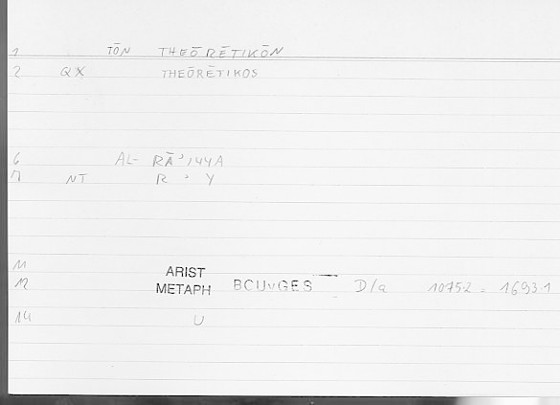 1 TŌN THEŌRĒTIKŌN
2 QX THEŌRĒTIKOS
6 AL- RĀʾIYYA
7 NT R ʾ Y
11
ARIST
12 METAPH BOUYGES D/a 10752 = 16931
14 U